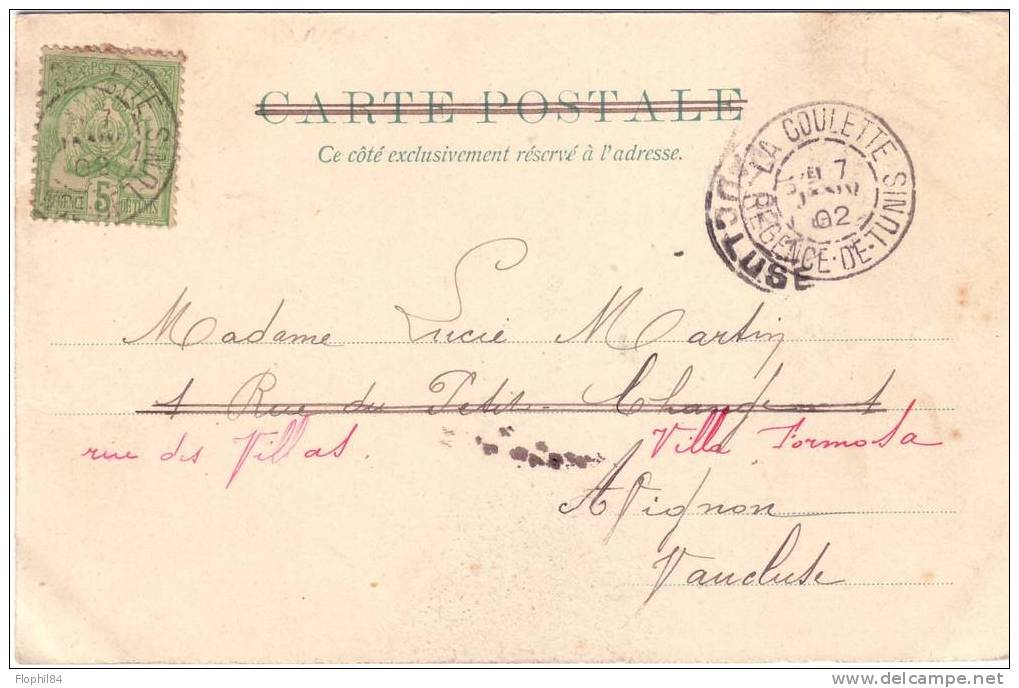 CARTE POSTALE
Ce côté exclusivement réservé à l'adresse.
LA GOULETTE TUNIS
7
02
REGENCE-DE-TUNIS
CLUSE
5
Madame Lucie Martin
1 Rue du Petit-Change 1
rue des Villas. Villa Formosa
Avignon
Vaucluse
Flophil84
www.delcampe.net